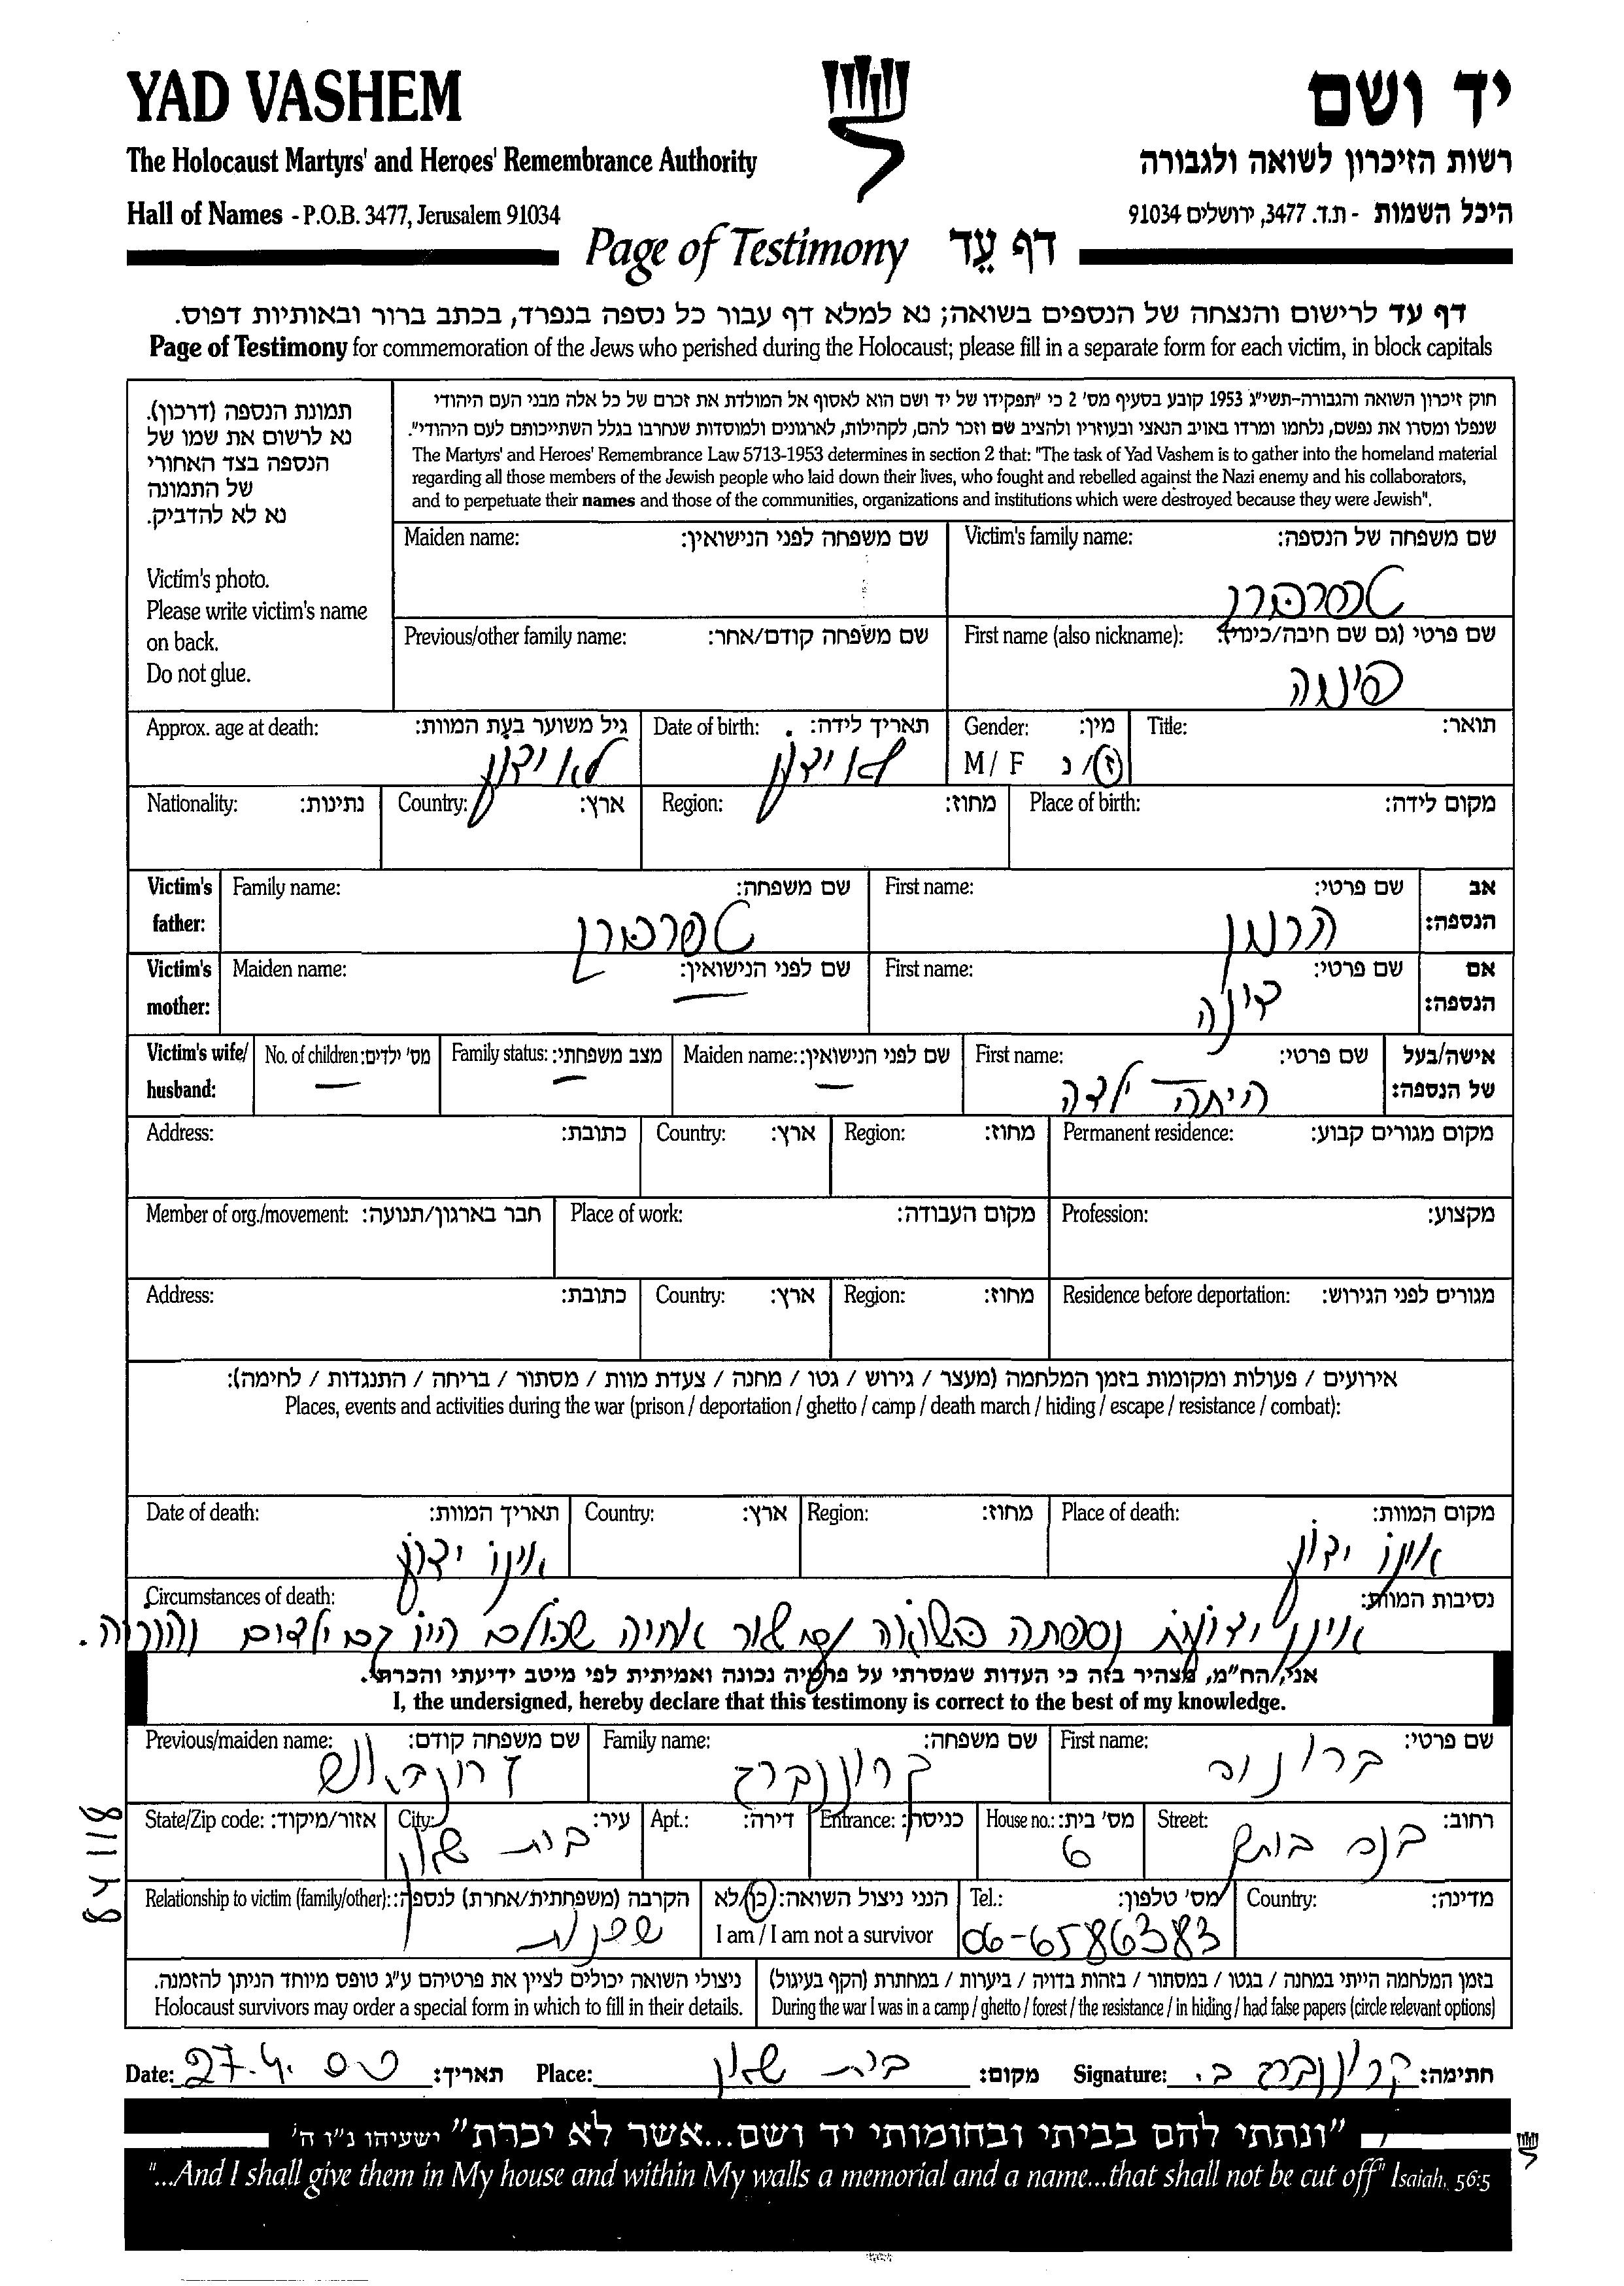 YAD VASHEM
יד ושם
The Holocaust Martyrs' and Heroes' Remembrance Authority
רשות הזיכרון לשואה ולגבורה
Hall of Names - P.O.B. 3477, Jerusalem 91034
היכל השמות - ת.ד. 3477, ירושלים 91034
Page of Testimony דף עֵד
דף עד לרישום והנצחה של הנספים בשואה; נא למלא דף עבור כל נספה בנפרד, בכתב ברור ובאותיות דפוס.
Page of Testimony for commemoration of the Jews who perished during the Holocaust; please fill in a separate form for each victim, in block capitals
תמונת הנספה (דרכון).
נא לרשום את שמו של
הנספה בצד האחורי
של התמונה
נא לא להדביק.
Victim's photo.
Please write victim's name
on back.
Do not glue.
חוק זיכרון השואה והגבורה-תשי"ג 1953 קובע בסעיף מס' 2 כי "תפקידו של יד ושם הוא לאסוף אל המולדת את זכרם של כל אלה מבני העם היהודי
שנפלו ומסרו את נפשם, נלחמו ומרדו באויב הנאצי ובעוזריו ולהציב שם וזכר להם, לקהילות, לארגונים ולמוסדות שנחרבו בגלל השתייכותם לעם היהודי".
The Martyrs' and Heroes' Remembrance Law 5713-1953 determines in section 2 that: "The task of Yad Vashem is to gather into the homeland material
regarding all those members of the Jewish people who laid down their lives, who fought and rebelled against the Nazi enemy and his collaborators,
and to perpetuate their names and those of the communities, organizations and institutions which were destroyed because they were Jewish".
Maiden name: שם משפחה לפני הנישואין:
Victim's family name: שם משפחה של הנספה:
Previous/other family name: שם משפחה קודם/אחר:
First name (also nickname): שם פרטי (גם שם חיבה/כינוי):
Approx. age at death: גיל משוער בעת המוות:
לא ידוע
Date of birth: תאריך לידה:
לא ידוע
Gender: מין:
M / F ז / נ
Title: תואר:
Nationality: נתינות:
Country: ארץ:
Region: מחוז:
Place of birth: מקום לידה:
Victim's father:
Family name: שם משפחה:
First name: שם פרטי:
הרמן
אב הנספה:
Victim's mother:
Maiden name: שם לפני הנישואין:
—
First name: שם פרטי:
דינה
אם הנספה:
Victim's wife/ husband:
No. of children: מס' ילדים:
—
Family status: מצב משפחתי:
—
Maiden name: שם לפני הנישואין:
—
First name: שם פרטי:
היתה ילדה
אישה/בעל של הנספה:
Address: כתובת:
Country: ארץ:
Region: מחוז:
Permanent residence: מקום מגורים קבוע:
Member of org./movement: חבר בארגון/תנועה:
Place of work: מקום העבודה:
Profession: מקצוע:
Address: כתובת:
Country: ארץ:
Region: מחוז:
Residence before deportation: מגורים לפני הגירוש:
אירועים / פעולות ומקומות בזמן המלחמה (מעצר / גירוש / גטו / מחנה / צעדת מוות / מסתור / בריחה / התנגדות / לחימה):
Places, events and activities during the war (prison / deportation / ghetto / camp / death march / hiding / escape / resistance / combat):
Date of death: תאריך המוות:
אינו ידוע
Country: ארץ:
Region: מחוז:
Place of death: מקום המוות:
אינו ידוע
Circumstances of death: נסיבות המוות:
אינן ידועות נספתה בשואה עם שאר אחיה שכולם היו גם ילדים והוריה.
אני, הח"מ, מצהיר בזה כי העדות שמסרתי על פרטיה נכונה ואמיתית לפי מיטב ידיעתי והכרתי.
I, the undersigned, hereby declare that this testimony is correct to the best of my knowledge.
Previous/maiden name: שם משפחה קודם:
Family name: שם משפחה:
קרוננברג
First name: שם פרטי:
ברוניה
State/Zip code: אזור/מיקוד:
City: עיר:
בית שאן
Apt.: דירה:
Entrance: כניסה:
House no.: מס' בית:
6
Street: רחוב:
Relationship to victim (family/other): הקרבה (משפחתית/אחרת) לנספה:
שכנות
הנני ניצול השואה: כן/לא
I am / I am not a survivor
Tel.: מס' טלפון:
06-6586383
Country: מדינה:
ניצולי השואה יכולים לציין את פרטיהם ע"ג טופס מיוחד הניתן להזמנה.
Holocaust survivors may order a special form in which to fill in their details.
בזמן המלחמה הייתי במחנה / בגטו / במסתור / בזהות בדויה / ביערות / במחתרת (הקף בעיגול)
During the war I was in a camp / ghetto / forest / the resistance / in hiding / had false papers (circle relevant options)
Date: 27.4. תאריך:
Place: בית שאן מקום:
Signature: קרוננברג ב. חתימה:
"ונתתי להם בביתי ובחומותי יד ושם...אשר לא יכרת" ישעיהו נ"ו ה'
"...And I shall give them in My house and within My walls a memorial and a name...that shall not be cut off" Isaiah, 56:5